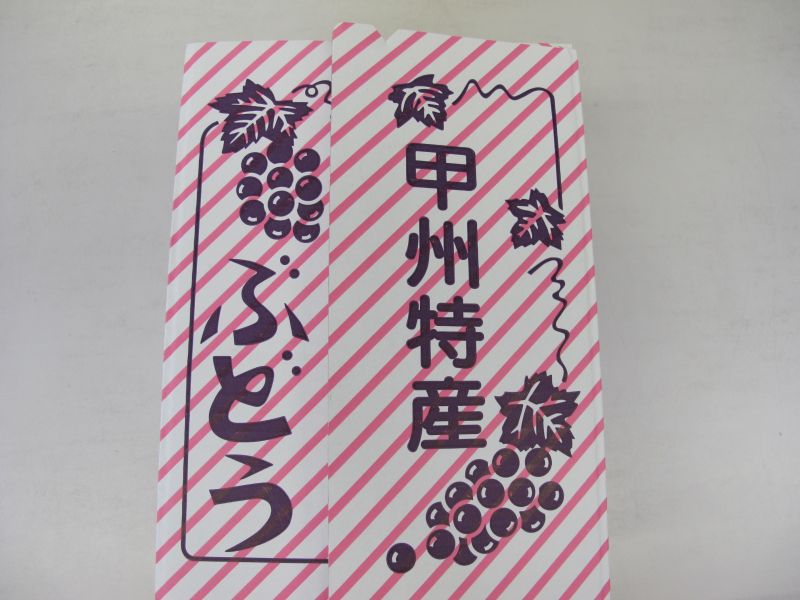 甲州特産
ぶどう